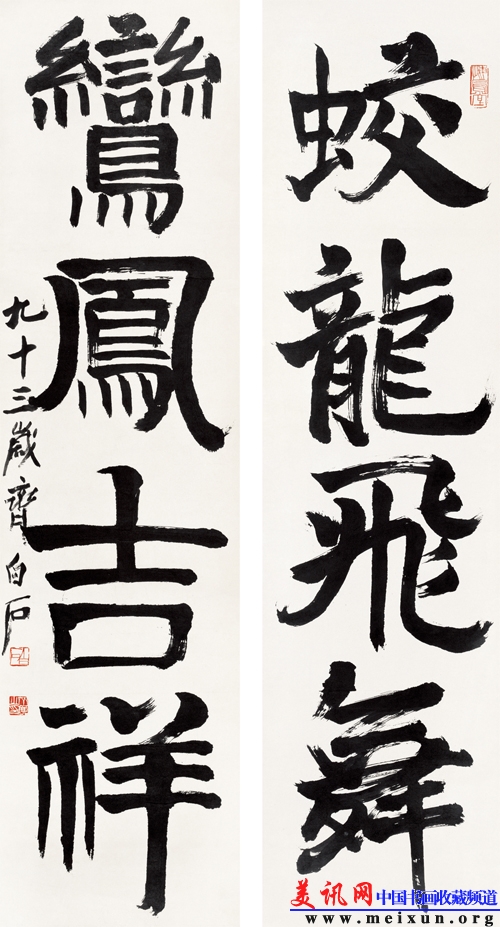 蛟龍飛舞
鸞鳳吉祥
九十三歲齊白石
美讯网 中国书画收藏频道
www.meixun.org